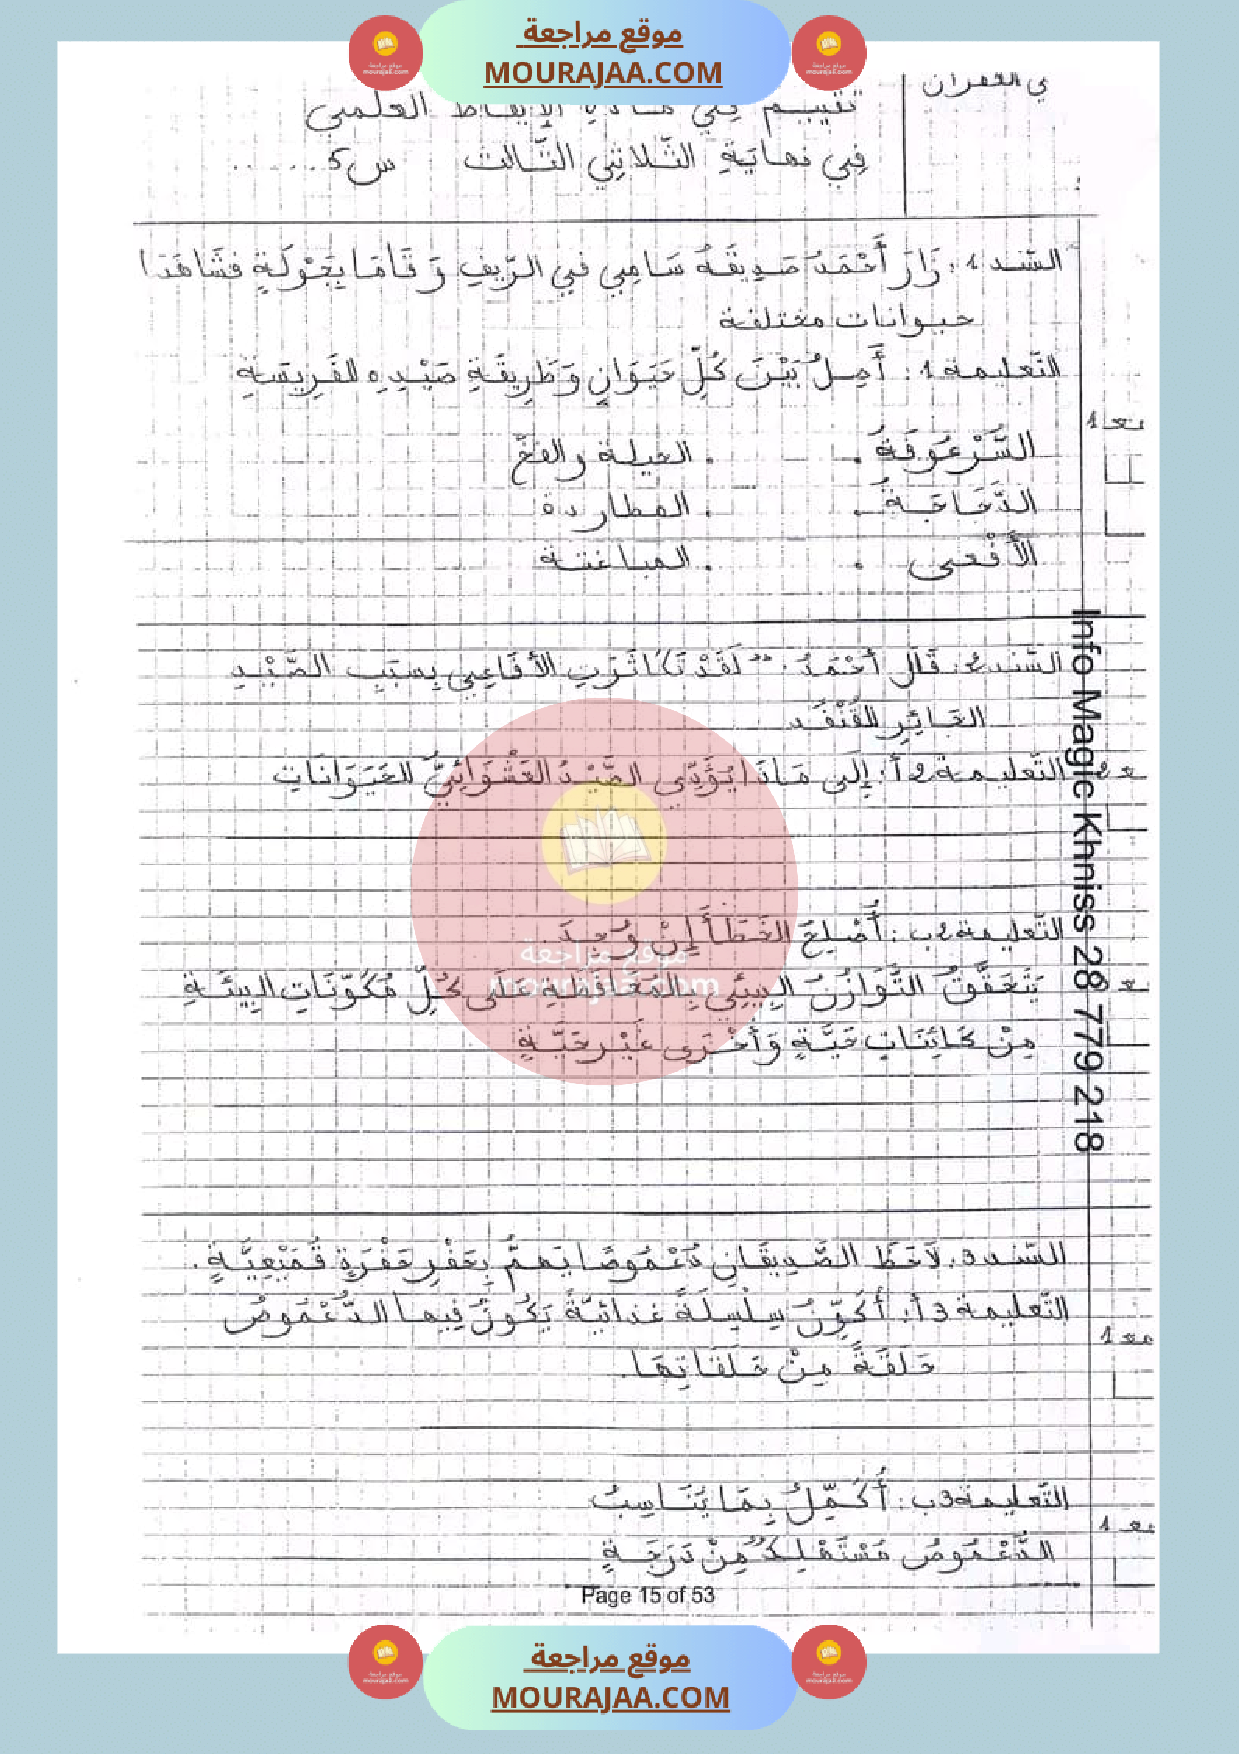 موقع مراجعة
MOURAJAA.COM
ي القرآن
تقييم في مادة الإيقاظ العلمي
في نهاية الثّلاثي الثّالث س5......
السّند 1: زَارَ أَحْمَدُ صَدِيقَهُ سَامِي فِي الرِّيفِ وَ قَامَا بِجَوْلَةٍ فَشَاهَدَا
حيوانات مختلفة
التّعليمة 1: أَصِلُ بَيْنَ كُلِّ حَيَوَانٍ وَطَرِيقَةِ صَيْدِهِ لفَرِيسَةِ
مع 1
السُّرْعُوفَةُ . . الحيلة والفخّ
الدَّجَاجَةُ . . المطاردة
الأَفْعَى . . المباغتة
السّند 2: قَالَ أَحْمَدُ: "لَقَدْ تَكَاثَرَتِ الأَفَاعِي بِسَبَبِ الصَّيْدِ
الجَائِرِ للقُنْفُد
التّعليمة 2أ: إِلَى مَاذَا يُؤَدِّي الصَّيْدُ العَشْوَائِيُّ للحَيَوَانَاتِ
مع 2
التّعليمة 2ب: أُصْلِحُ الخَطَأَ إِنْ وُجِدَ
يَتَحَقَّقُ التَّوَازُنُ البِيئِي بِالمُحَافَظَةِ عَلَى كُلِّ مُكَوِّنَاتِ البِيئَةِ
مِنْ كَائِنَاتٍ حَيَّةٍ وَأُخْرَى غَيْرِ حَيَّةٍ
السّند 3: لَاحَظَ الصَّدِيقَانِ دُعْمُوصًا يَهُمُّ بِحَفْرِ حُفْرَةٍ قُمْعِيَّةٍ.
التّعليمة 3أ: أُكَوِّنُ سِلْسِلَةً غذائيّةً يَكُونُ فيها الدُّعْمُوصُ
حَلَقَةً مِنْ حَلَقَاتِهَا.
مع 1
التّعليمة 3ب: أُكَمِّلُ بِمَا يُنَاسِبُ
مع 1
الدُّعْمُوصُ مُسْتَهْلِكٌ مِنْ دَرَجَةِ
Page 15 of 53
Info Magic Khniss 28 779 218
موقع مراجعة
mourajaa.com
موقع مراجعة
MOURAJAA.COM